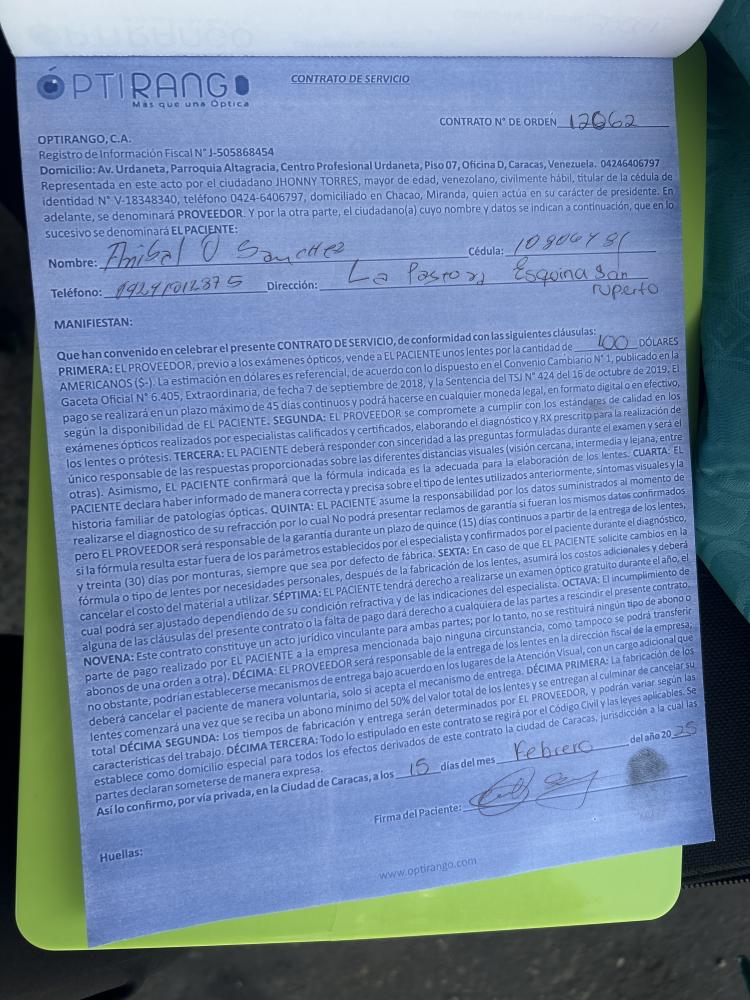 ÓPTIRANGO
Más que una Óptica
CONTRATO DE SERVICIO
CONTRATO N° DE ORDEN 12062
OPTIRANGO, C.A.
Registro de Información Fiscal N° J-505868454
Domicilio: Av. Urdaneta, Parroquia Altagracia, Centro Profesional Urdaneta, Piso 07, Oficina D, Caracas, Venezuela. 04246406797
Representada en este acto por el ciudadano JHONNY TORRES, mayor de edad, venezolano, civilmente hábil, titular de la cédula de
identidad N° V-18348340, teléfono 0424-6406797, domiciliado en Chacao, Miranda, quien actúa en su carácter de presidente. En
adelante, se denominará PROVEEDOR. Y por la otra parte, el ciudadano(a) cuyo nombre y datos se indican a continuación, que en lo
sucesivo se denominará EL PACIENTE:
Nombre: Anibal O Sanchez Cédula:
Teléfono: Dirección: La Pastora Esquina San
ruperto
MANIFIESTAN:
Que han convenido en celebrar el presente CONTRATO DE SERVICIO, de conformidad con las siguientes cláusulas:
PRIMERA: EL PROVEEDOR, previo a los exámenes ópticos, vende a EL PACIENTE unos lentes por la cantidad de 100 DÓLARES
AMERICANOS ($-). La estimación en dólares es referencial, de acuerdo con lo dispuesto en el Convenio Cambiario N° 1, publicado en la
Gaceta Oficial N° 6.405, Extraordinaria, de fecha 7 de septiembre de 2018, y la Sentencia del TSJ N° 424 del 16 de octubre de 2019. El
pago se realizará en un plazo máximo de 45 días continuos y podrá hacerse en cualquier moneda legal, en formato digital o en efectivo,
según la disponibilidad de EL PACIENTE. SEGUNDA: EL PROVEEDOR se compromete a cumplir con los estándares de calidad en los
exámenes ópticos realizados por especialistas calificados y certificados, elaborando el diagnóstico y RX prescrito para la realización de
los lentes o prótesis. TERCERA: EL PACIENTE deberá responder con sinceridad a las preguntas formuladas durante el examen y será el
único responsable de las respuestas proporcionadas sobre las diferentes distancias visuales (visión cercana, intermedia y lejana, entre
otras). Asimismo, EL PACIENTE confirmará que la fórmula indicada es la adecuada para la elaboración de los lentes. CUARTA: EL
PACIENTE declara haber informado de manera correcta y precisa sobre el tipo de lentes utilizados anteriormente, síntomas visuales y la
historia familiar de patologías ópticas. QUINTA: EL PACIENTE asume la responsabilidad por los datos suministrados al momento de
realizarse el diagnostico de su refracción por lo cual No podrá presentar reclamos de garantía si fueran los mismos datos confirmados
pero EL PROVEEDOR será responsable de la garantía durante un plazo de quince (15) días continuos a partir de la entrega de los lentes,
si la fórmula resulta estar fuera de los parámetros establecidos por el especialista y confirmados por el paciente durante el diagnóstico,
y treinta (30) días por monturas, siempre que sea por defecto de fábrica. SEXTA: En caso de que EL PACIENTE solicite cambios en la
fórmula o tipo de lentes por necesidades personales, después de la fabricación de los lentes, asumirá los costos adicionales y deberá
cancelar el costo del material a utilizar. SÉPTIMA: EL PACIENTE tendrá derecho a realizarse un examen óptico gratuito durante el año, el
cual podrá ser ajustado dependiendo de su condición refractiva y de las indicaciones del especialista. OCTAVA: El incumplimiento de
alguna de las cláusulas del presente contrato o la falta de pago dará derecho a cualquiera de las partes a rescindir el presente contrato.
NOVENA: Este contrato constituye un acto jurídico vinculante para ambas partes; por lo tanto, no se restituirá ningún tipo de abono o
parte de pago realizado por EL PACIENTE a la empresa mencionada bajo ninguna circunstancia, como tampoco se podrá transferir
abonos de una orden a otra). DÉCIMA: EL PROVEEDOR será responsable de la entrega de los lentes en la dirección fiscal de la empresa;
no obstante, podrían establecerse mecanismos de entrega bajo acuerdo en los lugares de la Atención Visual, con un cargo adicional que
deberá cancelar el paciente de manera voluntaria, solo si acepta el mecanismo de entrega. DÉCIMA PRIMERA: La fabricación de los
lentes comenzará una vez que se reciba un abono mínimo del 50% del valor total de los lentes y se entregan al culminar de cancelar su
total DÉCIMA SEGUNDA: Los tiempos de fabricación y entrega serán determinados por EL PROVEEDOR, y podrán variar según las
características del trabajo. DÉCIMA TERCERA: Todo lo estipulado en este contrato se regirá por el Código Civil y las leyes aplicables. Se
establece como domicilio especial para todos los efectos derivados de este contrato la ciudad de Caracas, jurisdicción a la cual las
partes declaran someterse de manera expresa.
Así lo confirmo, por vía privada, en la Ciudad de Caracas, a los 15 días del mes Febrero del año 2025
Firma del Paciente:
Huellas:
www.optirango.com